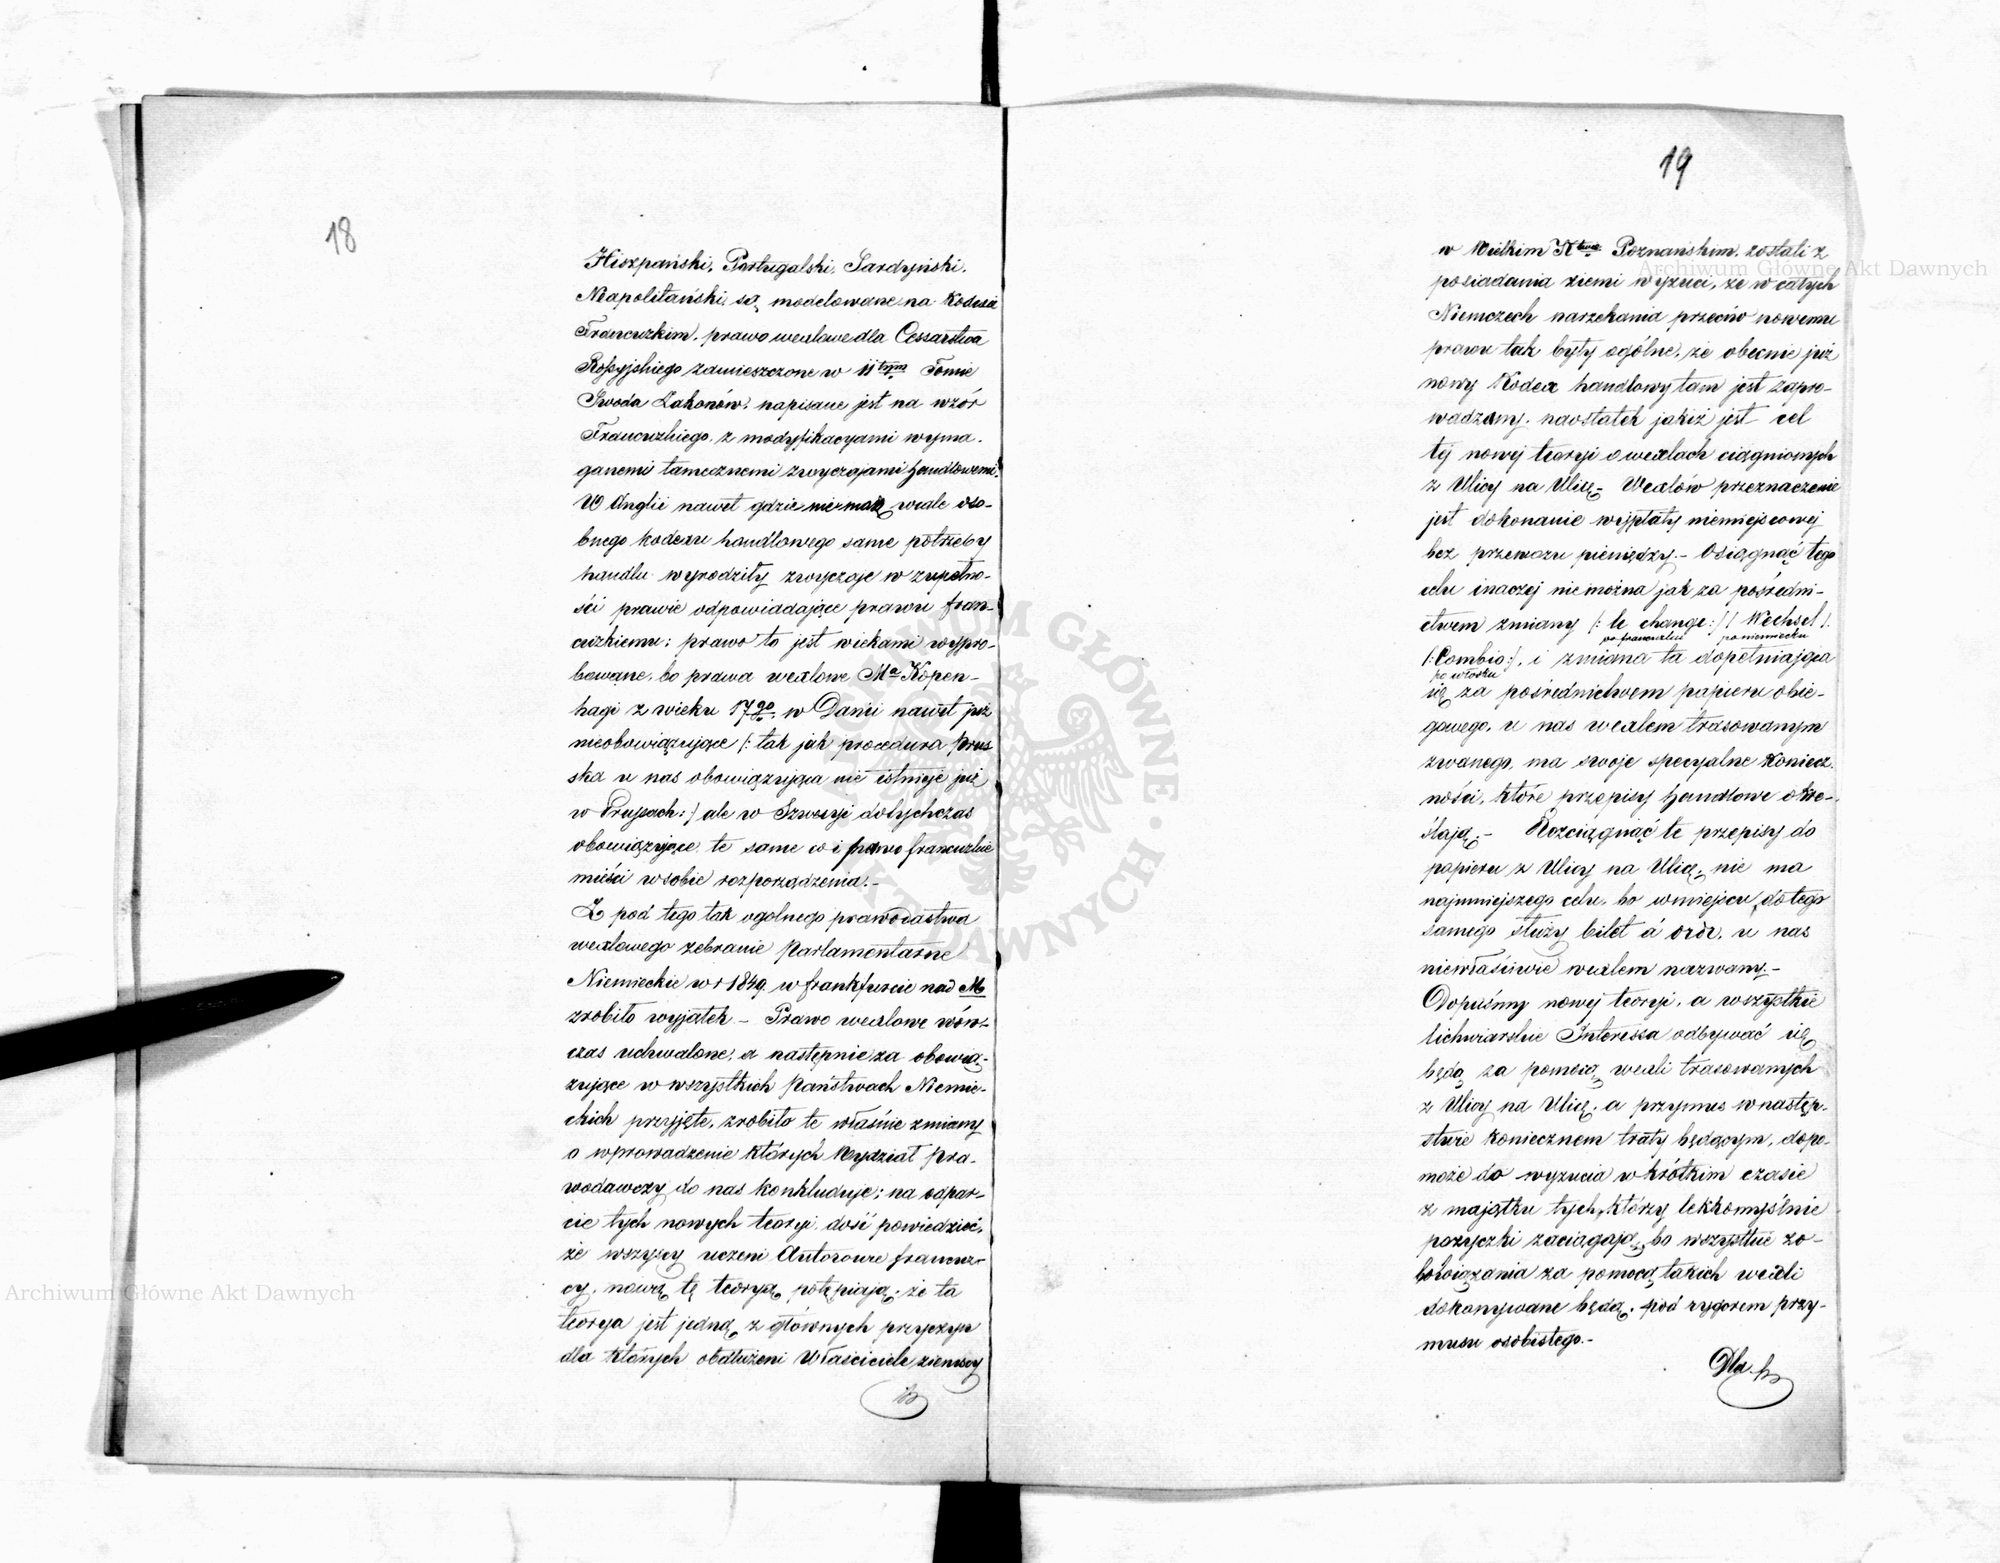 18
Hiszpański, Portugalski, Sardyński,
Neapolitański są modelowane na Kodexie
Francuzkim, prawo wexlowe dla Cessarstwa
Rossyjskiego zamieszczone w 11tym Tomie
Swoda Zakonów, napisane jest na wzór
Francuzkiego z modyfikacyami wyma-
ganemi tamecznemi zwyczajami handlowemi.
W Anglii nawet gdzie niema wcale oso-
bnego kodexu handlowego same potrzeby
handlu wyrodziły zwyczaje w zupełno-
ści prawie odpowiadające prawu fran-
cuzkiemu; prawo to jest wiekami wypro-
bowane, bo prawa wexlowe Ma Kopen-
hagi z wieku 17go, w Danii nawet już
nieobowiązujące /: tak jak procedura Prus
ska u nas obowiązująca nie istnieje już
w Prusach :/ ale w Szwecyi dotychczas
obowiązujące, te same co i prawo francuzkie
mieści w sobie rozporządzenia.-
Z pod tego tak ogolnego prawodastwa
wexlowego zebranie Parlamentarne
Niemieckie w r 1849. w frankfurcie nad M
zrobiło wyjątek – Prawo wexlowe wów-
czas uchwalone, a następnie za obowią-
zujące w wszystkich Państwach Niemie-
ckich przyjęte, zrobiło te właśnie zmiany
o wprowadzenie których Wydział Pra-
wodawczy do nas konkluduje; na odpar-
cie tych nowych teoryi dość powiedzieć,
że wszyscy uczeni Autorowie francuz-
cy, nową tę teoryą potępiają, że ta
teorya jest jedną z głównych przyczyn
dla których obdłużeni Właściciele ziemscy
19
w Wielkim Xtwie Poznańskim, zostali z
posiadania ziemi wyzuci, że w całych
Niemczech narzekania przeciw nowemu
prawu tak były ogólne, że obecnie już
nowy Kodex handlowy tam jest zapro-
wadzony, naostatek jakiż jest cel
tej nowej teoryi o wexlach ciągnionych
z Ulicy na Ulicę – Wexlów przeznaczenie
jest dokonanie wypłaty niemiejscowej
bez przewozu pieniędzy.– Osiągnąć tego
celu inaczej nie można jak za pośredni-
ctwem zmiany /: le change :/ / Wechsel /.
po francuzku po niemiecku
/: Cambio :/, i zmiana ta dopełniająca
po włosku
się za pośrednictwem papieru obie-
gowego, u nas wexlem trasowanym
zwanego, ma swoje specyalne Koniecz-
ności, które przepisy handlowe okre-
ślają.– Rozciągnąć te przepisy do
papieru z Ulicy na Ulicę, nie ma
najmniejszego celu, bo w miejscu do tego
samego służy bilet á ordr, u nas
niewłaściwie wexlem nazwany.–
Dopuśćmy nowej teoryi, a wszystkie
lichwiarskie Interessa odbywać się
będą za pomocą wexli trasowanych
z Ulicy na Ulicę, a przymus w następ-
stwie koniecznem traty będącym, dopo-
może do wyzucia w krótkim czasie
z majątku tych, którzy lekkomyślnie
pożyczki zaciągają, bo wszystkie zo-
bowiązania za pomocą takich wexli
dokonywane będą, pod rygorem przy-
musu osobistego.–
Dla